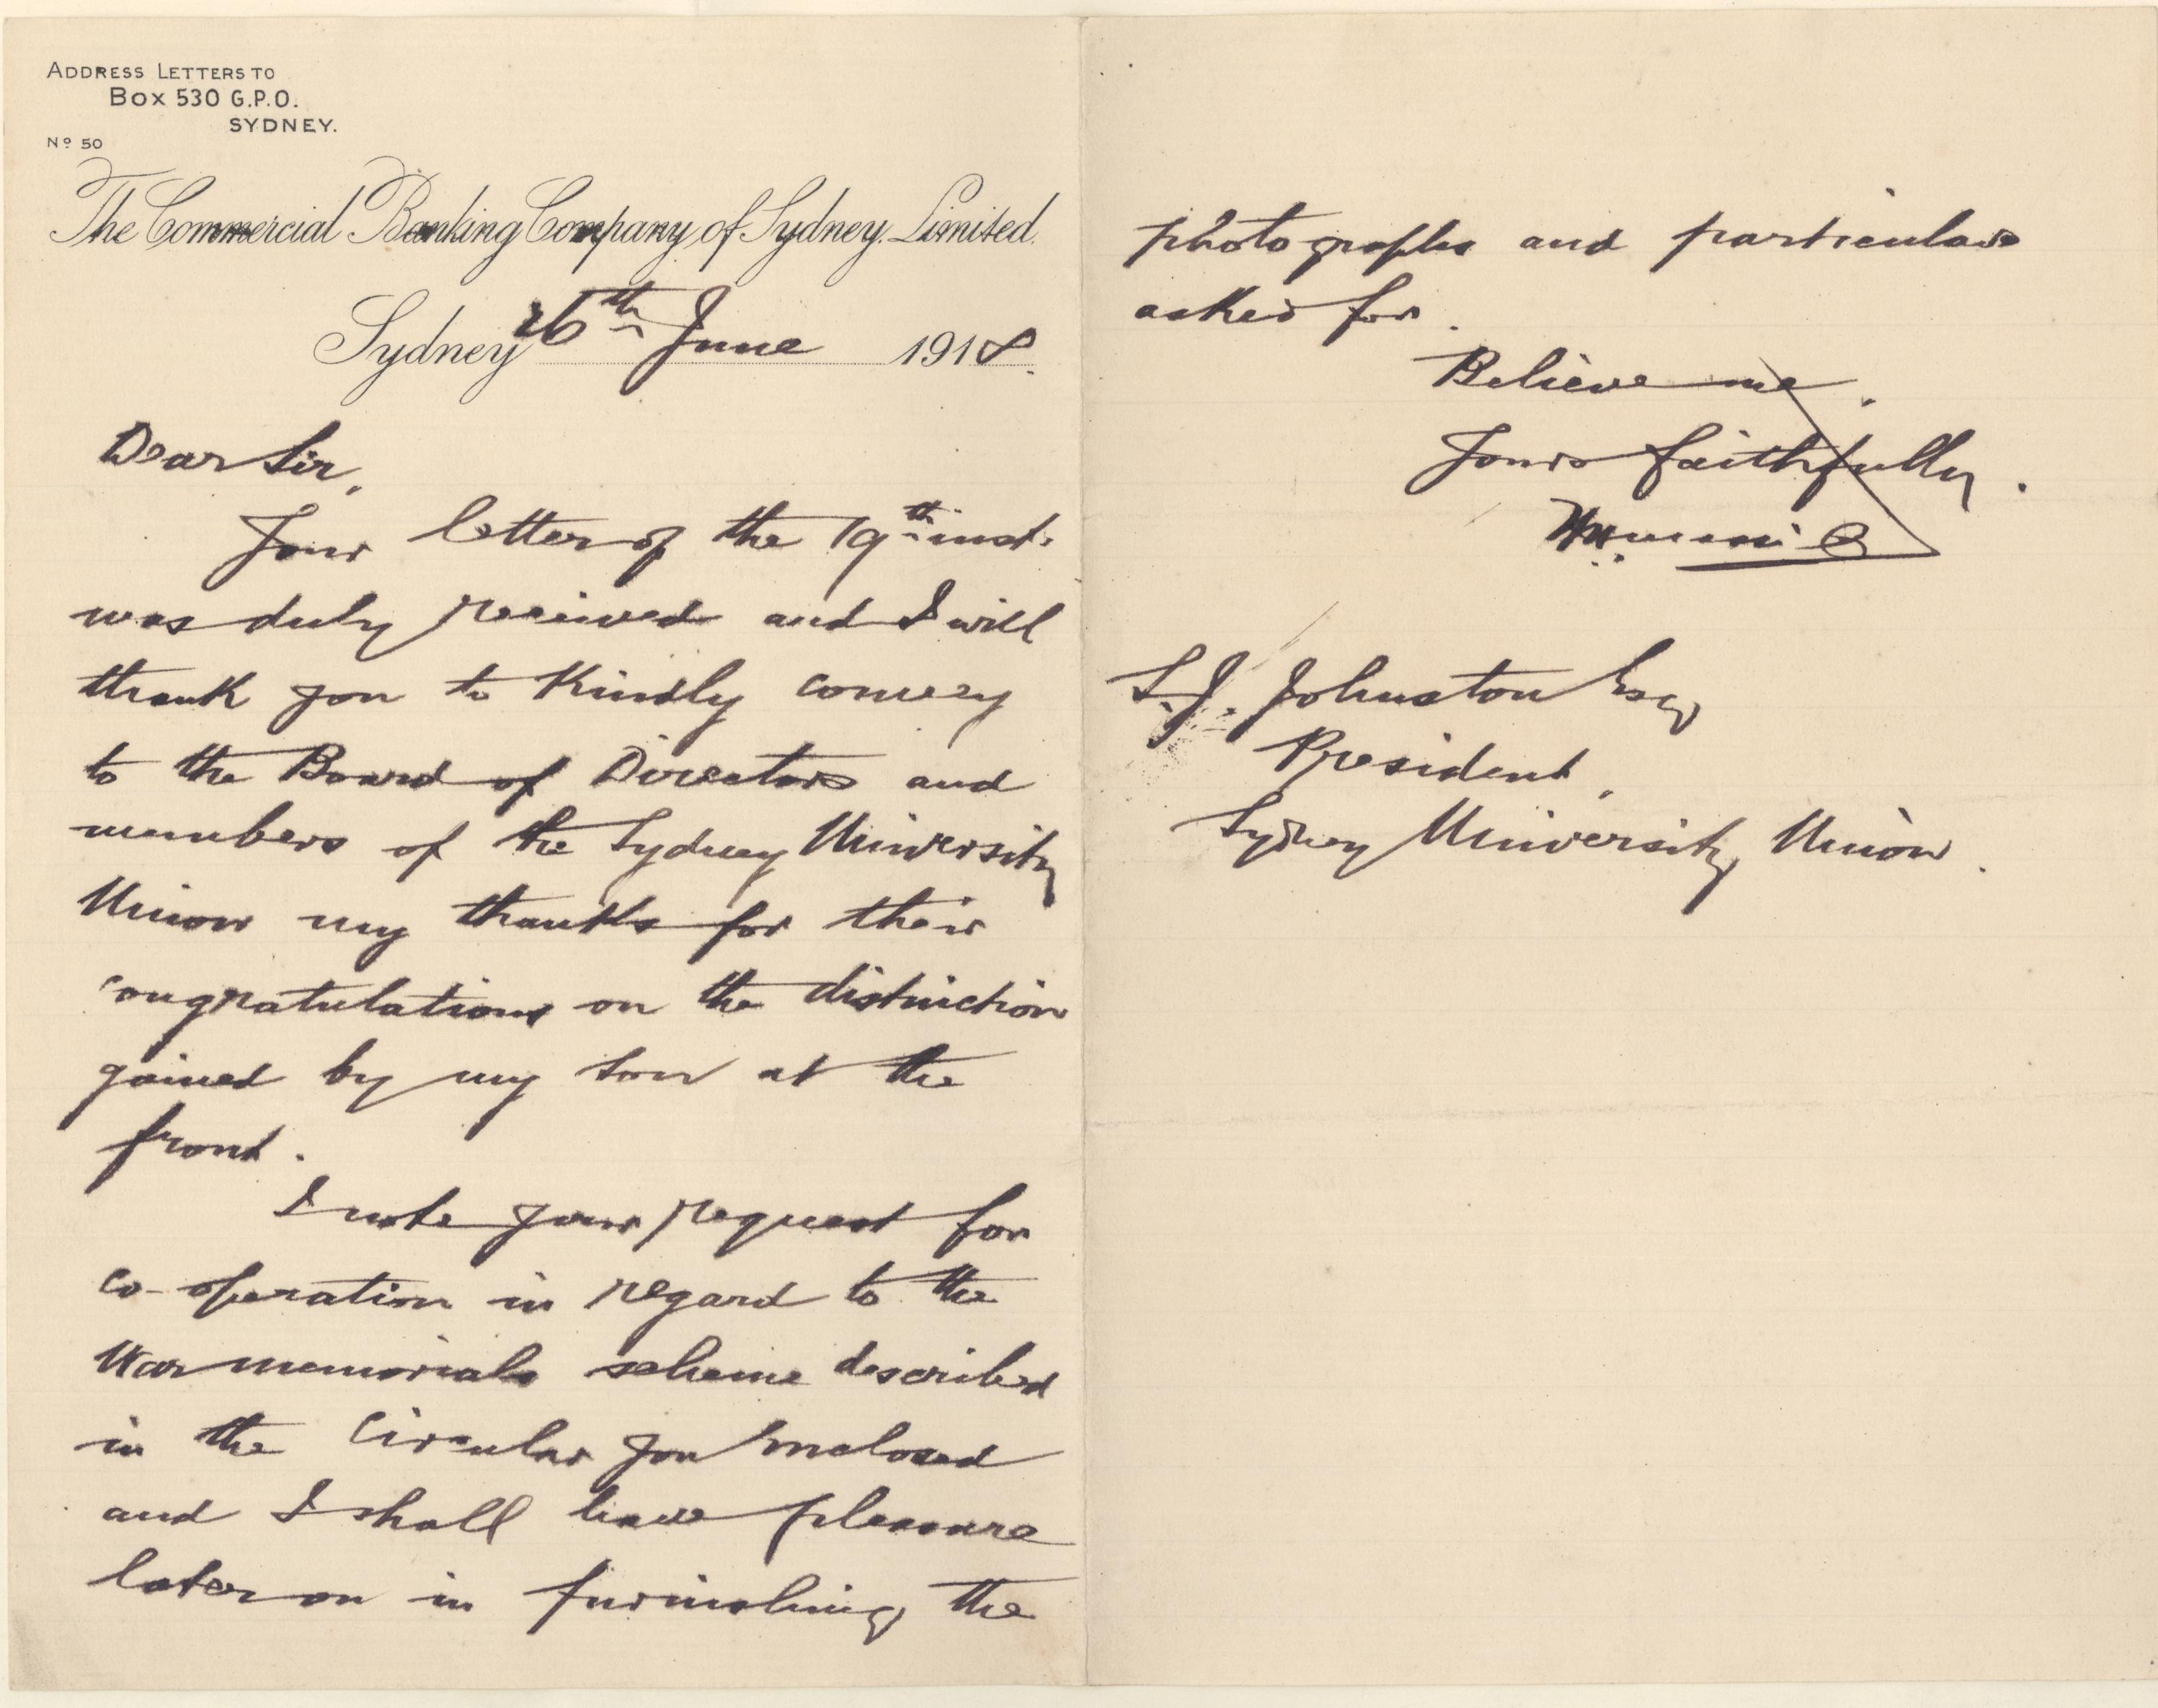 ADDRESS LETTERS TO
BOX 530 G.P.O.
SYDNEY.
Nº 50
The Commercial Banking Company of Sydney. Limited.
Sydney 26th June 1918.
Dear Sir,
Your letter of the 19th inst.
was duly received and I will
thank you to kindly convey
to the Board of Directors and
members of the Sydney University
Union my thanks for their
congratulations on the distinction
gained by my son at the
front.
I note your request for
co-operation in regard to the
War memorials scheme described
in the Circular you enclosed
and I shall have pleasure
later on in furnishing the
photographs and particulars
asked for.
Believe me,
Yours faithfully.
S.J. Johnston Esq
President,
Sydney University Union.